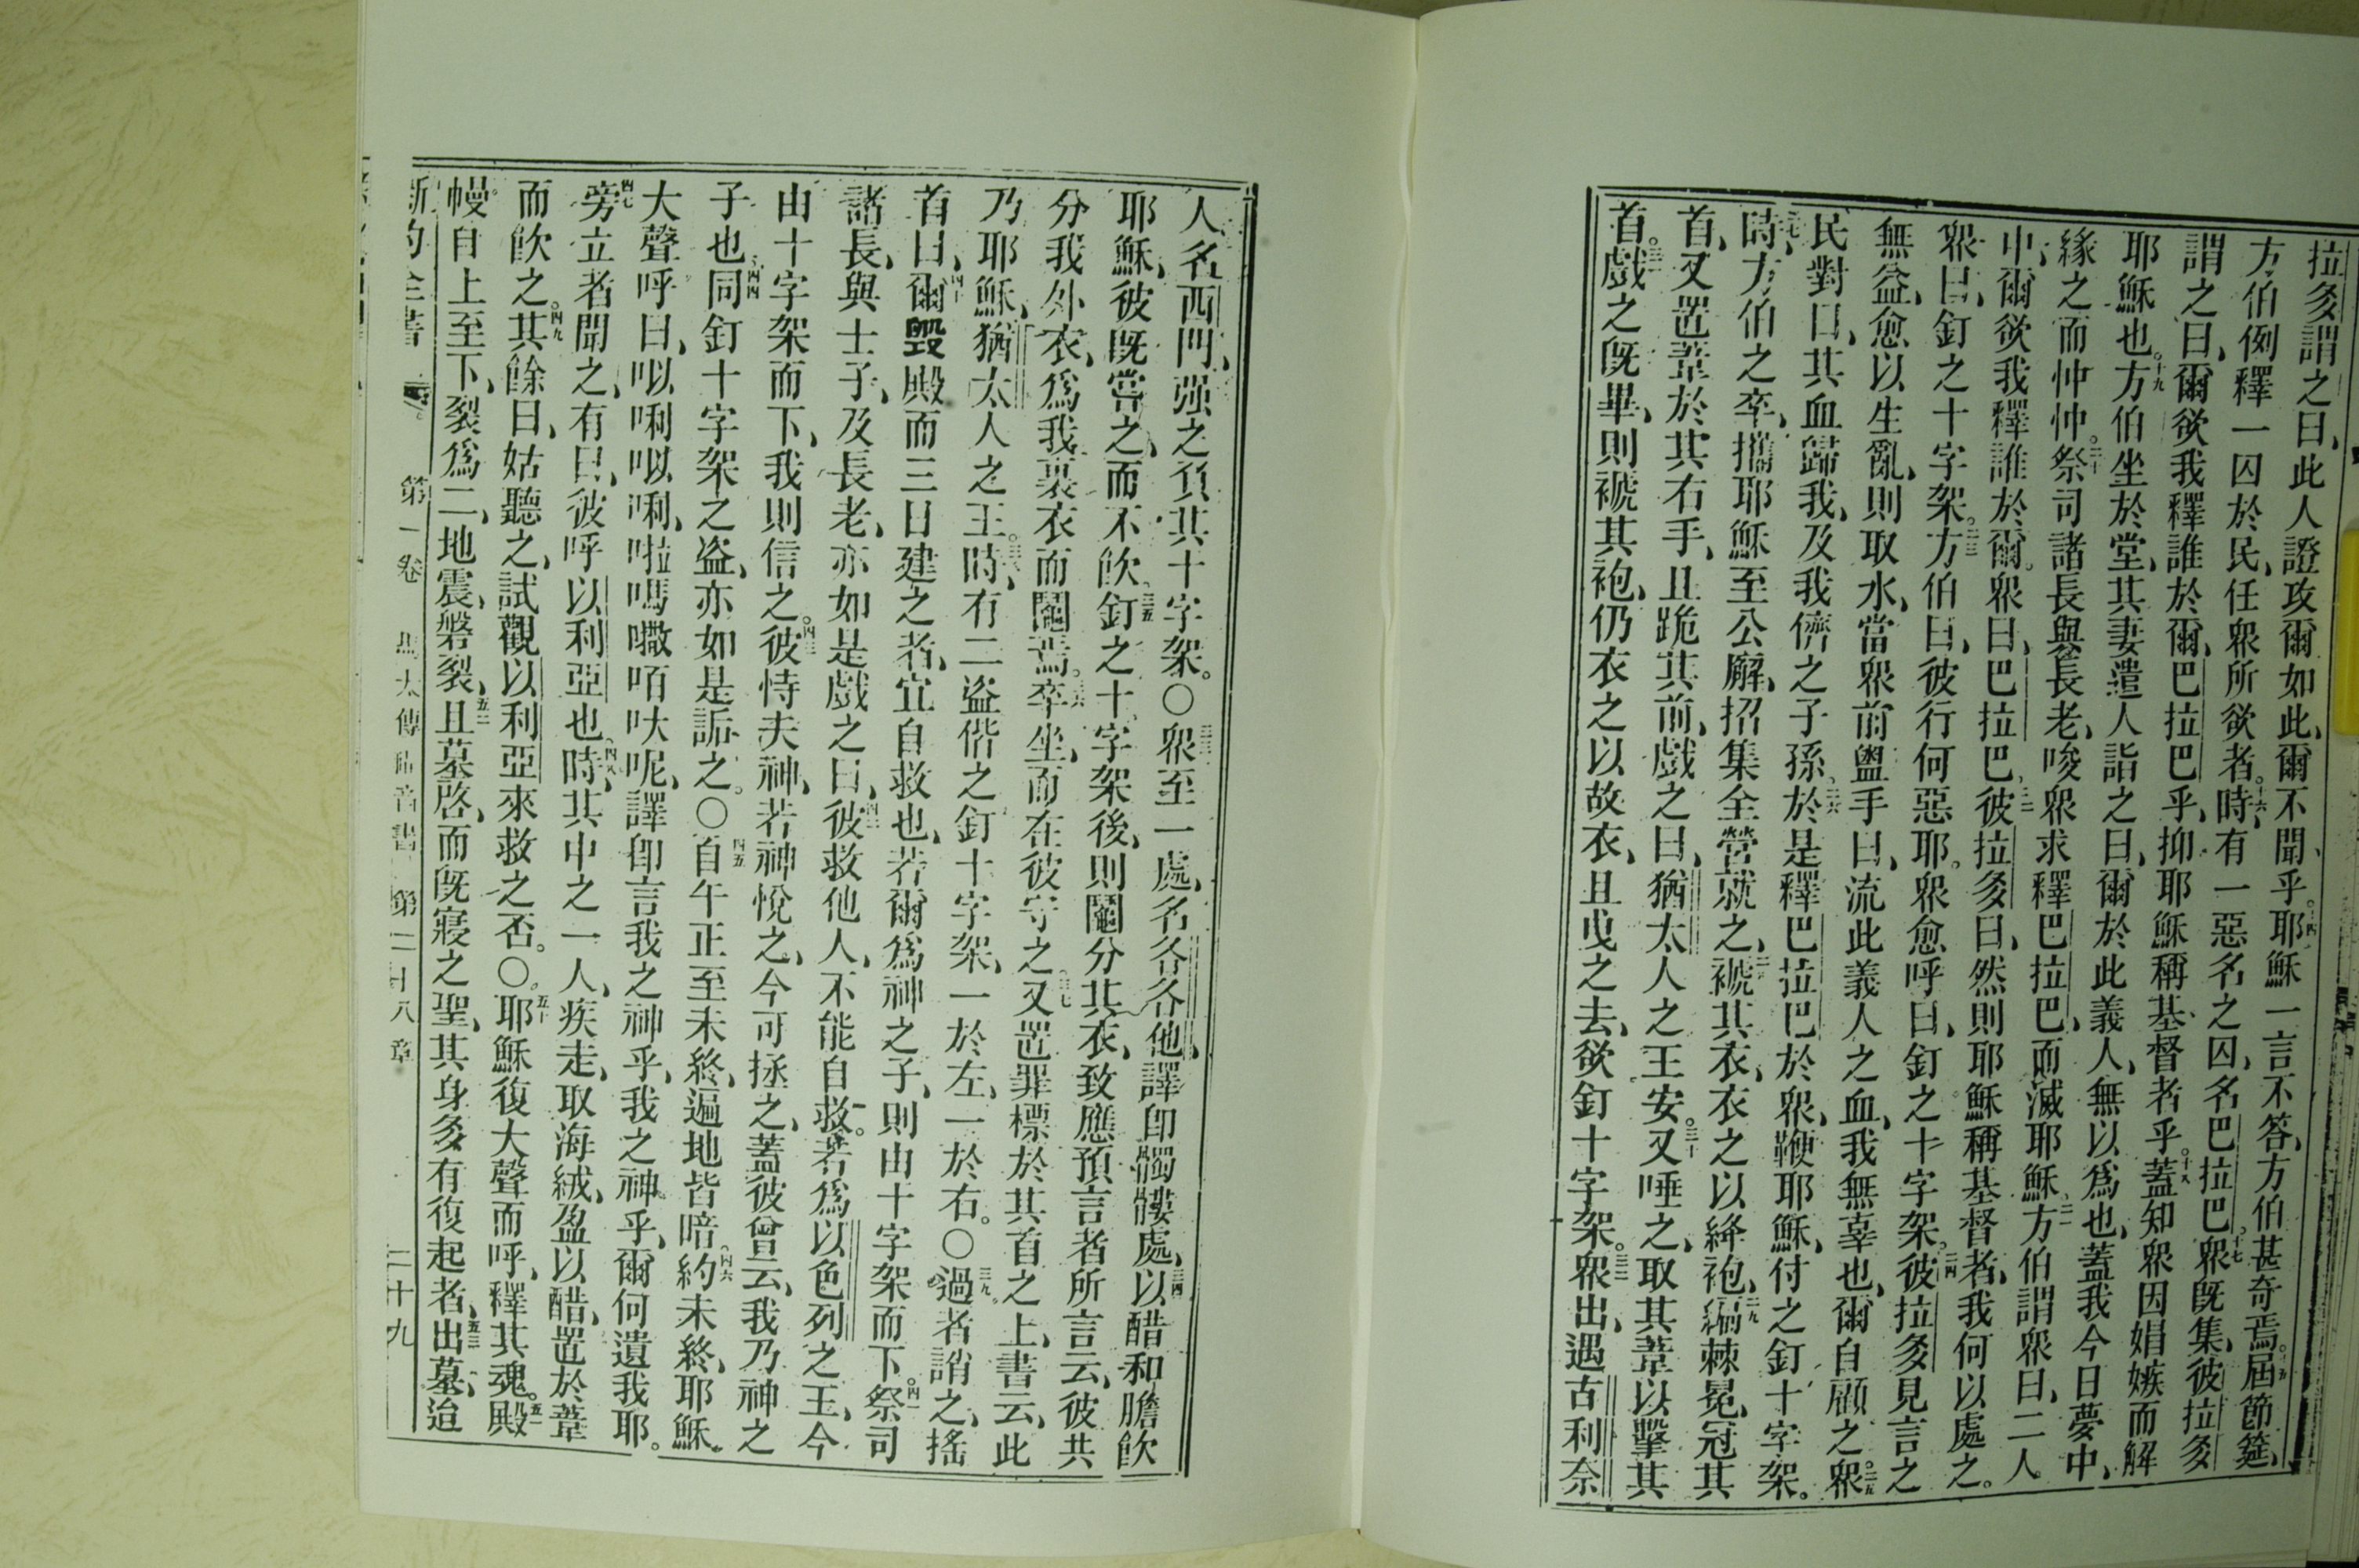 拉多謂之曰、此人證攻爾如此、爾不聞乎。十四耶穌一言不答、方伯甚奇焉。十五屆節筵、
方伯例釋一囚於民、任衆所欲者。十六時、有一惡名之囚、名巴拉巴。十七衆既集、彼拉多
謂之曰、爾欲我釋誰於爾、巴拉巴乎、抑耶穌稱基督者乎。十八蓋知衆因娼嫉而解
耶穌也。十九方伯坐於堂、其妻遣人詣之曰、爾於此義人、無以爲也、蓋我今日夢中、
緣之而忡忡。二十祭司諸長與長老、唆衆求釋巴拉巴、而滅耶穌。二一方伯謂衆曰、二人
中、爾欲我釋誰於爾。衆曰、巴拉巴。二二彼拉多曰、然則耶穌稱基督者、我何以處之。
衆曰、釘之十字架。二三方伯曰、彼行何惡耶。衆愈呼曰、釘之十字架。二四彼拉多見言之
無益、愈以生亂、則取水、當衆前盥手曰、流此義人之血、我無辜也、爾自顧之。二五衆
民對曰、其血歸我、及我儕之子孫。二六於是釋巴拉巴於衆、鞭耶穌、付之釘十字架。
二七時、方伯之卒、攜耶穌至公廨、招集全營就之、二八褫其衣、衣之以絳袍、二九編棘冕、冠其
首、又置葦於其右手、且跪其前、戲之曰、猶太人之王安。三十又唾之、取其葦以擊其
首。三一戲之既畢、則褫其袍、仍衣之以故衣、且曳之去、欲釘十字架。三二衆出、遇古利奈
人、名西門、强之負其十字架。〇三三衆至一處、名各各他、譯卽髑髏處、三四以醋和膽飮
耶穌、彼既嘗之、而不飮。三五釘之十字架後、則鬮分其衣、致應預言者所言云、彼共
分我外衣、爲我裏衣而鬮焉。三六卒坐、而在彼守之。三七又置罪標於其首之上、書云、此
乃耶穌、猶太人之王。三八時、有二盜偕之釘十字架、一於左、一於右。〇三九過者誚之、搖
首曰、四十爾毀殿而三日建之者、宜自救也、若爾爲神之子、則由十字架而下。四一祭司
諸長、與士子、及長老、亦如是戲之曰、四二彼救他人、不能自救。若爲以色列之王、今
由十字架而下、我則信之。四三彼恃夫神、若神悅之、今可拯之、蓋彼曾云、我乃神之
子也。四四同釘十字架之盜、亦如是詬之。〇四五自午正至未終、遍地皆暗。四六約未終、耶穌
大聲呼曰、㕥唎㕥唎、啦嗎嚛咟呔呢、譯卽言我之神乎、我之神乎、爾何遺我耶。
四七旁立者聞之、有曰、彼呼以利亞也。四八時、其中之一人、疾走、取海絨、盈以醋、置於葦
而飮之。四九其餘曰、姑聽之、試觀以利亞來救之否。〇五十耶穌復大聲而呼、釋其魂。五一殿
幔自上至下、裂爲二、地震、磐裂、五二且墓啓、而既寢之聖、其身多有復起者、五三出墓、迨
新約全書 第一卷 馬太傳福音書 第二十八章 二十九